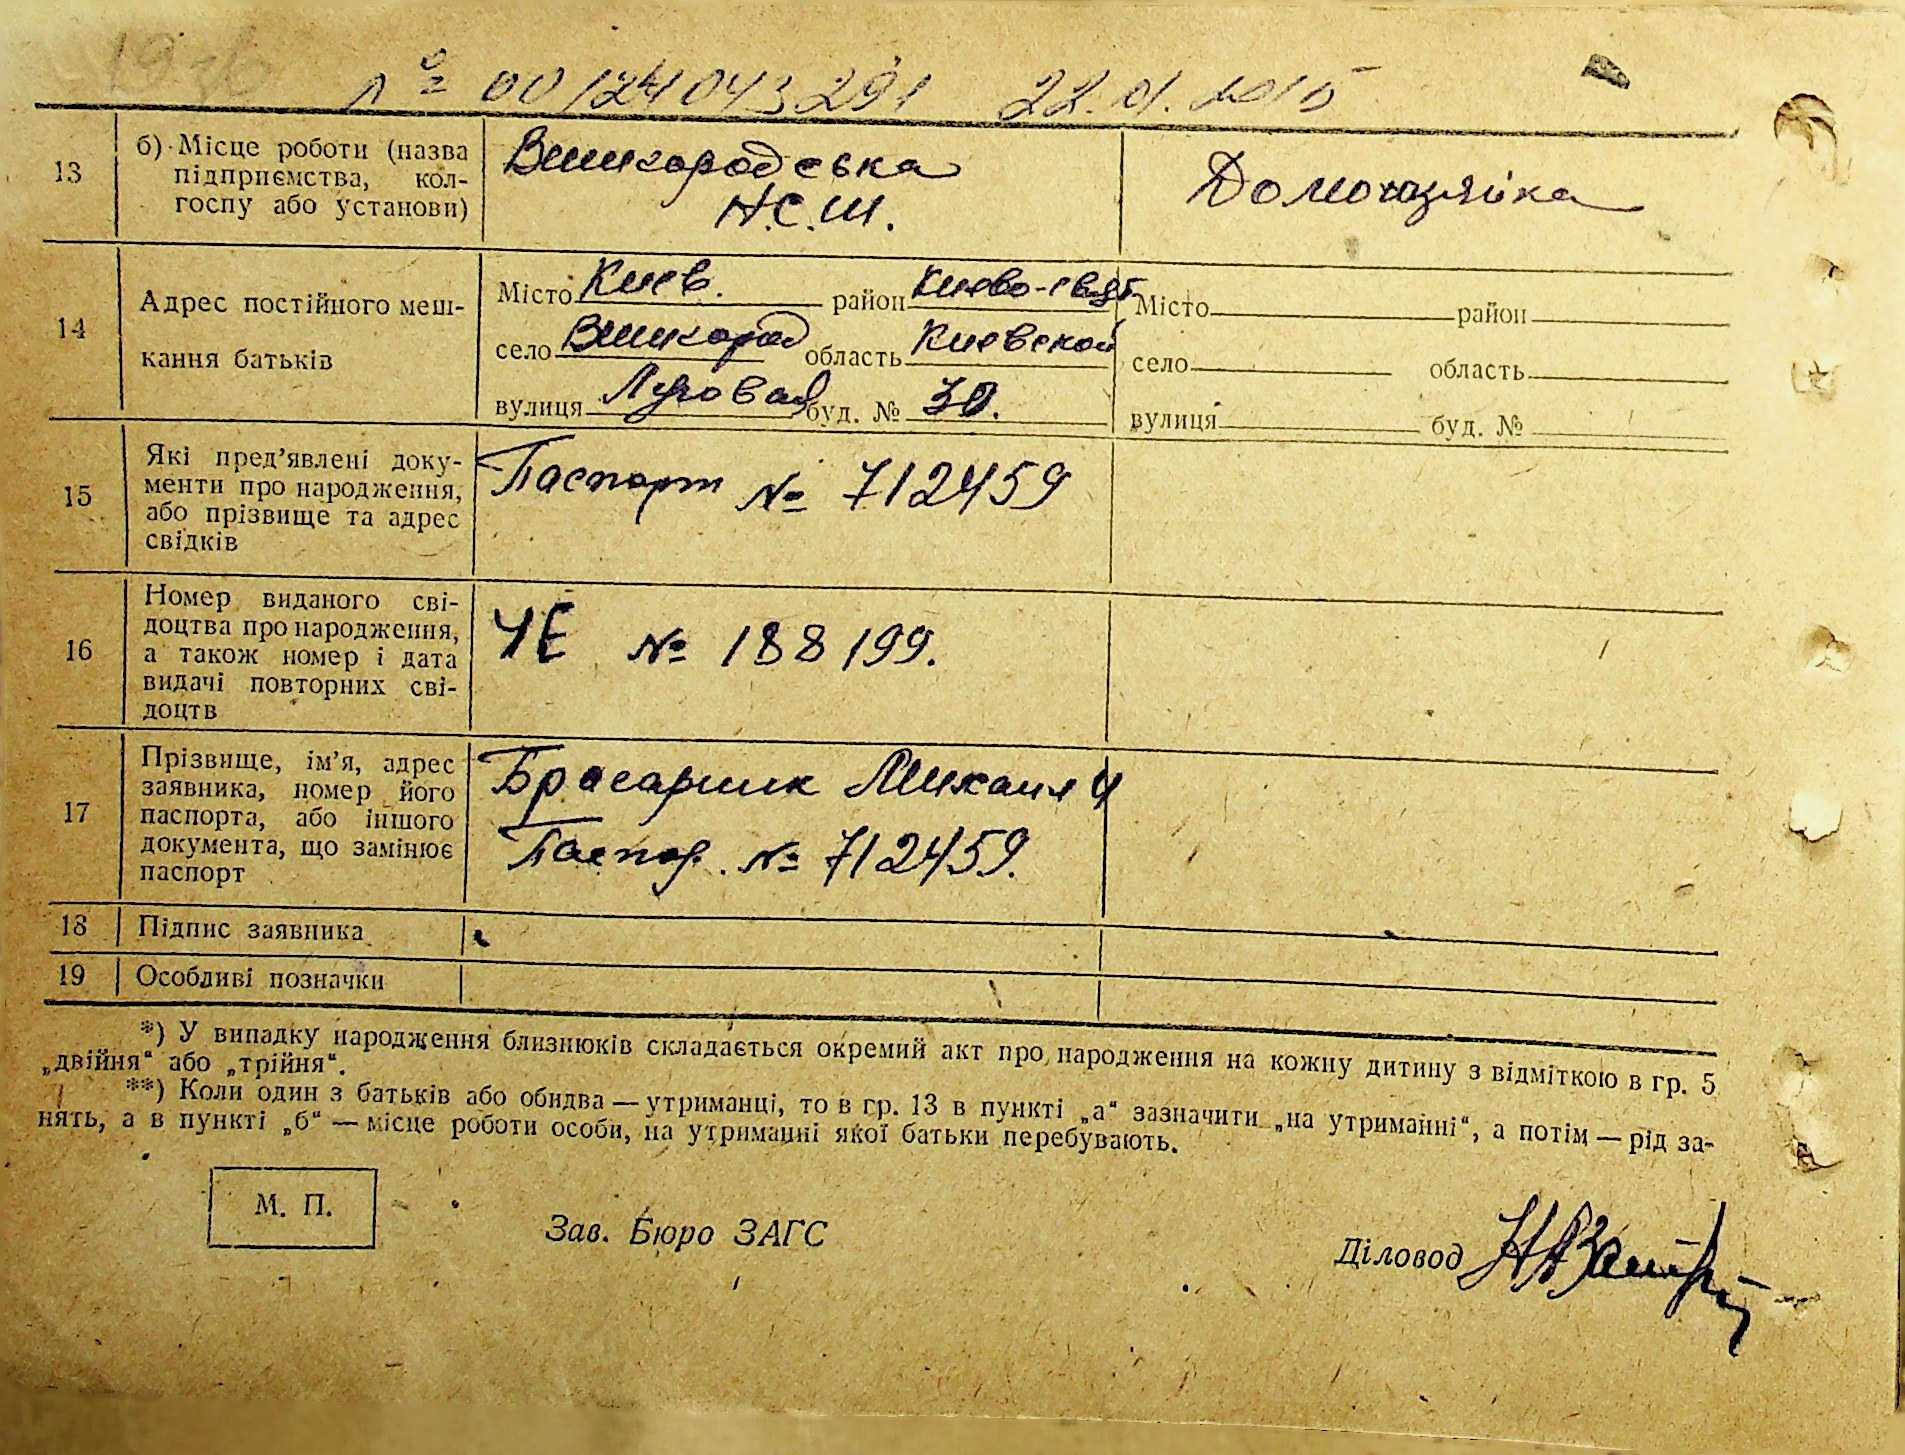 № 00124043291 22.01.2015
13 б) Місце роботи (назва
підприємства, кол-
госпу або установи)
Вишгородська
Н.С.Ш.
Домохазяйка
14 Адрес постійного меш-
кання батьків
Місто Киев. район Киево-свят.
село Вишгород область Киевской
вулиця Луговая буд. № 30.
Місто район
село область
вулиця буд. №
15 Які пред’явлені доку-
менти про народження,
або прізвище та адрес
свідків
Паспорт № 712459
16 Номер виданого сві-
доцтва про народження,
а також номер і дата
видачі повторних сві-
доцтв
ЧЕ № 188199.
17 Прізвище, ім’я, адрес
заявника, номер його
паспорта, або іншого
документа, що замінює
паспорт
Михаил
Паспор. № 712459.
18 Підпис заявника
19 Особливі позначки
*) У випадку народження близнюків складається окремий акт про народження на кожну дитину з відміткою в гр. 5
„двійня“ або „трійня“.
**) Коли один з батьків або обидва — утриманці, то в гр. 13 в пункті „а“ зазначити „на утриманні“, а потім — рід за-
нять, а в пункті „б“ — місце роботи особи, на утриманні якої батьки перебувають.
М. П.
Зав. Бюро ЗАГС
Діловод